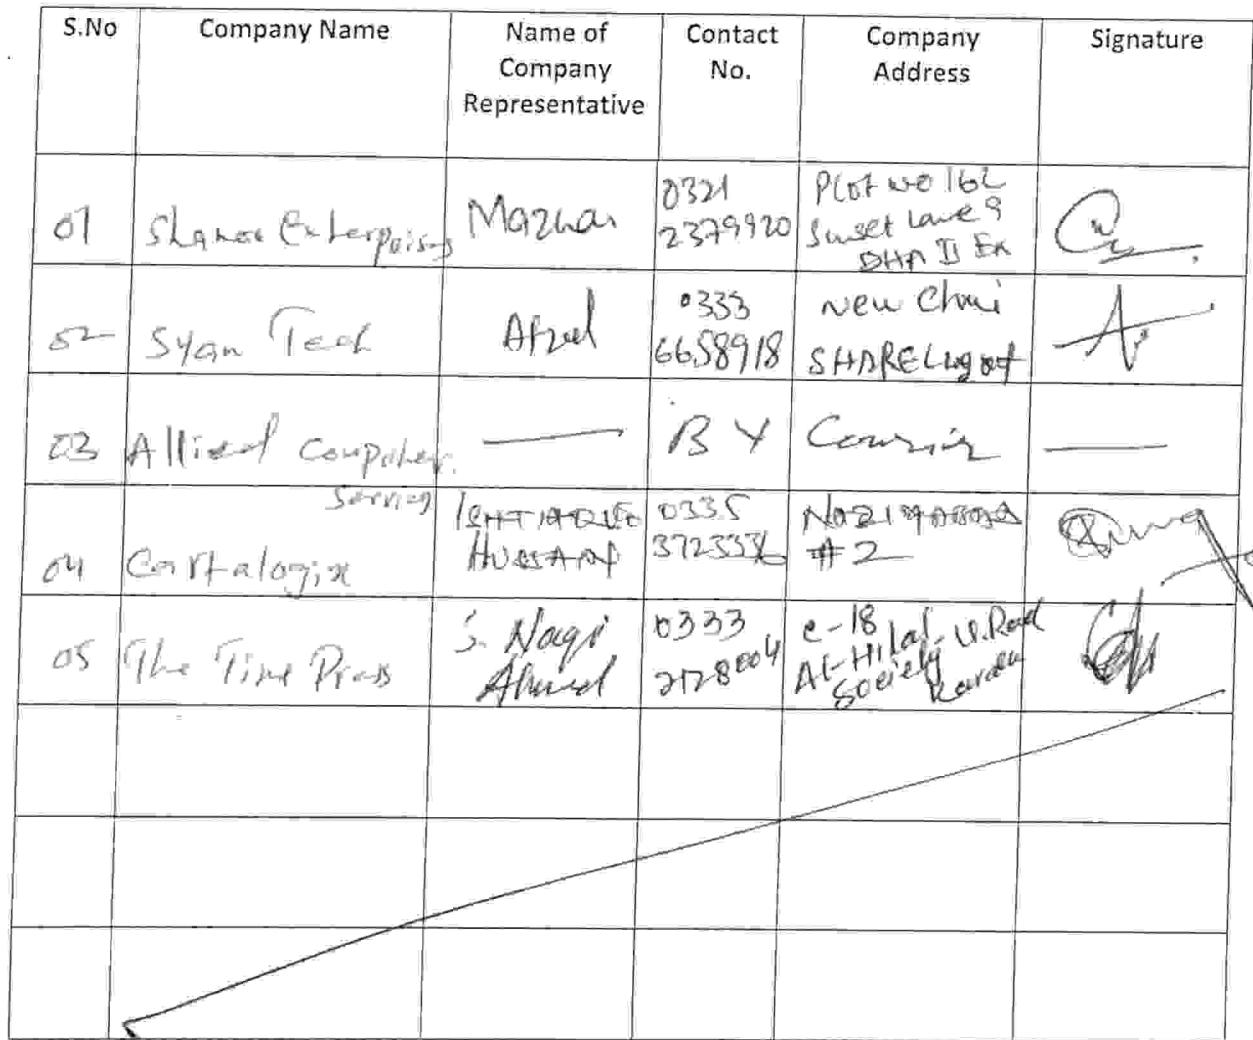 S.No
Company Name
Name of
Company
Representative
Contact
No.
Company
Address
Signature
01
Enterprises
Mazhar
0321
2379920
Plot no 162
Sunset Lane 9
DHA II Ex
02
Syan Tech
Afzal
0333
6658918
New
03
Allied Computer
Services
—
BY
Courier
—
04
HUSSAIN
0335
3723336
#2
05
The Time Press
S. Naqi
Ahmed
0333
2128004
C-18
Al-Hilal
Society U. Road